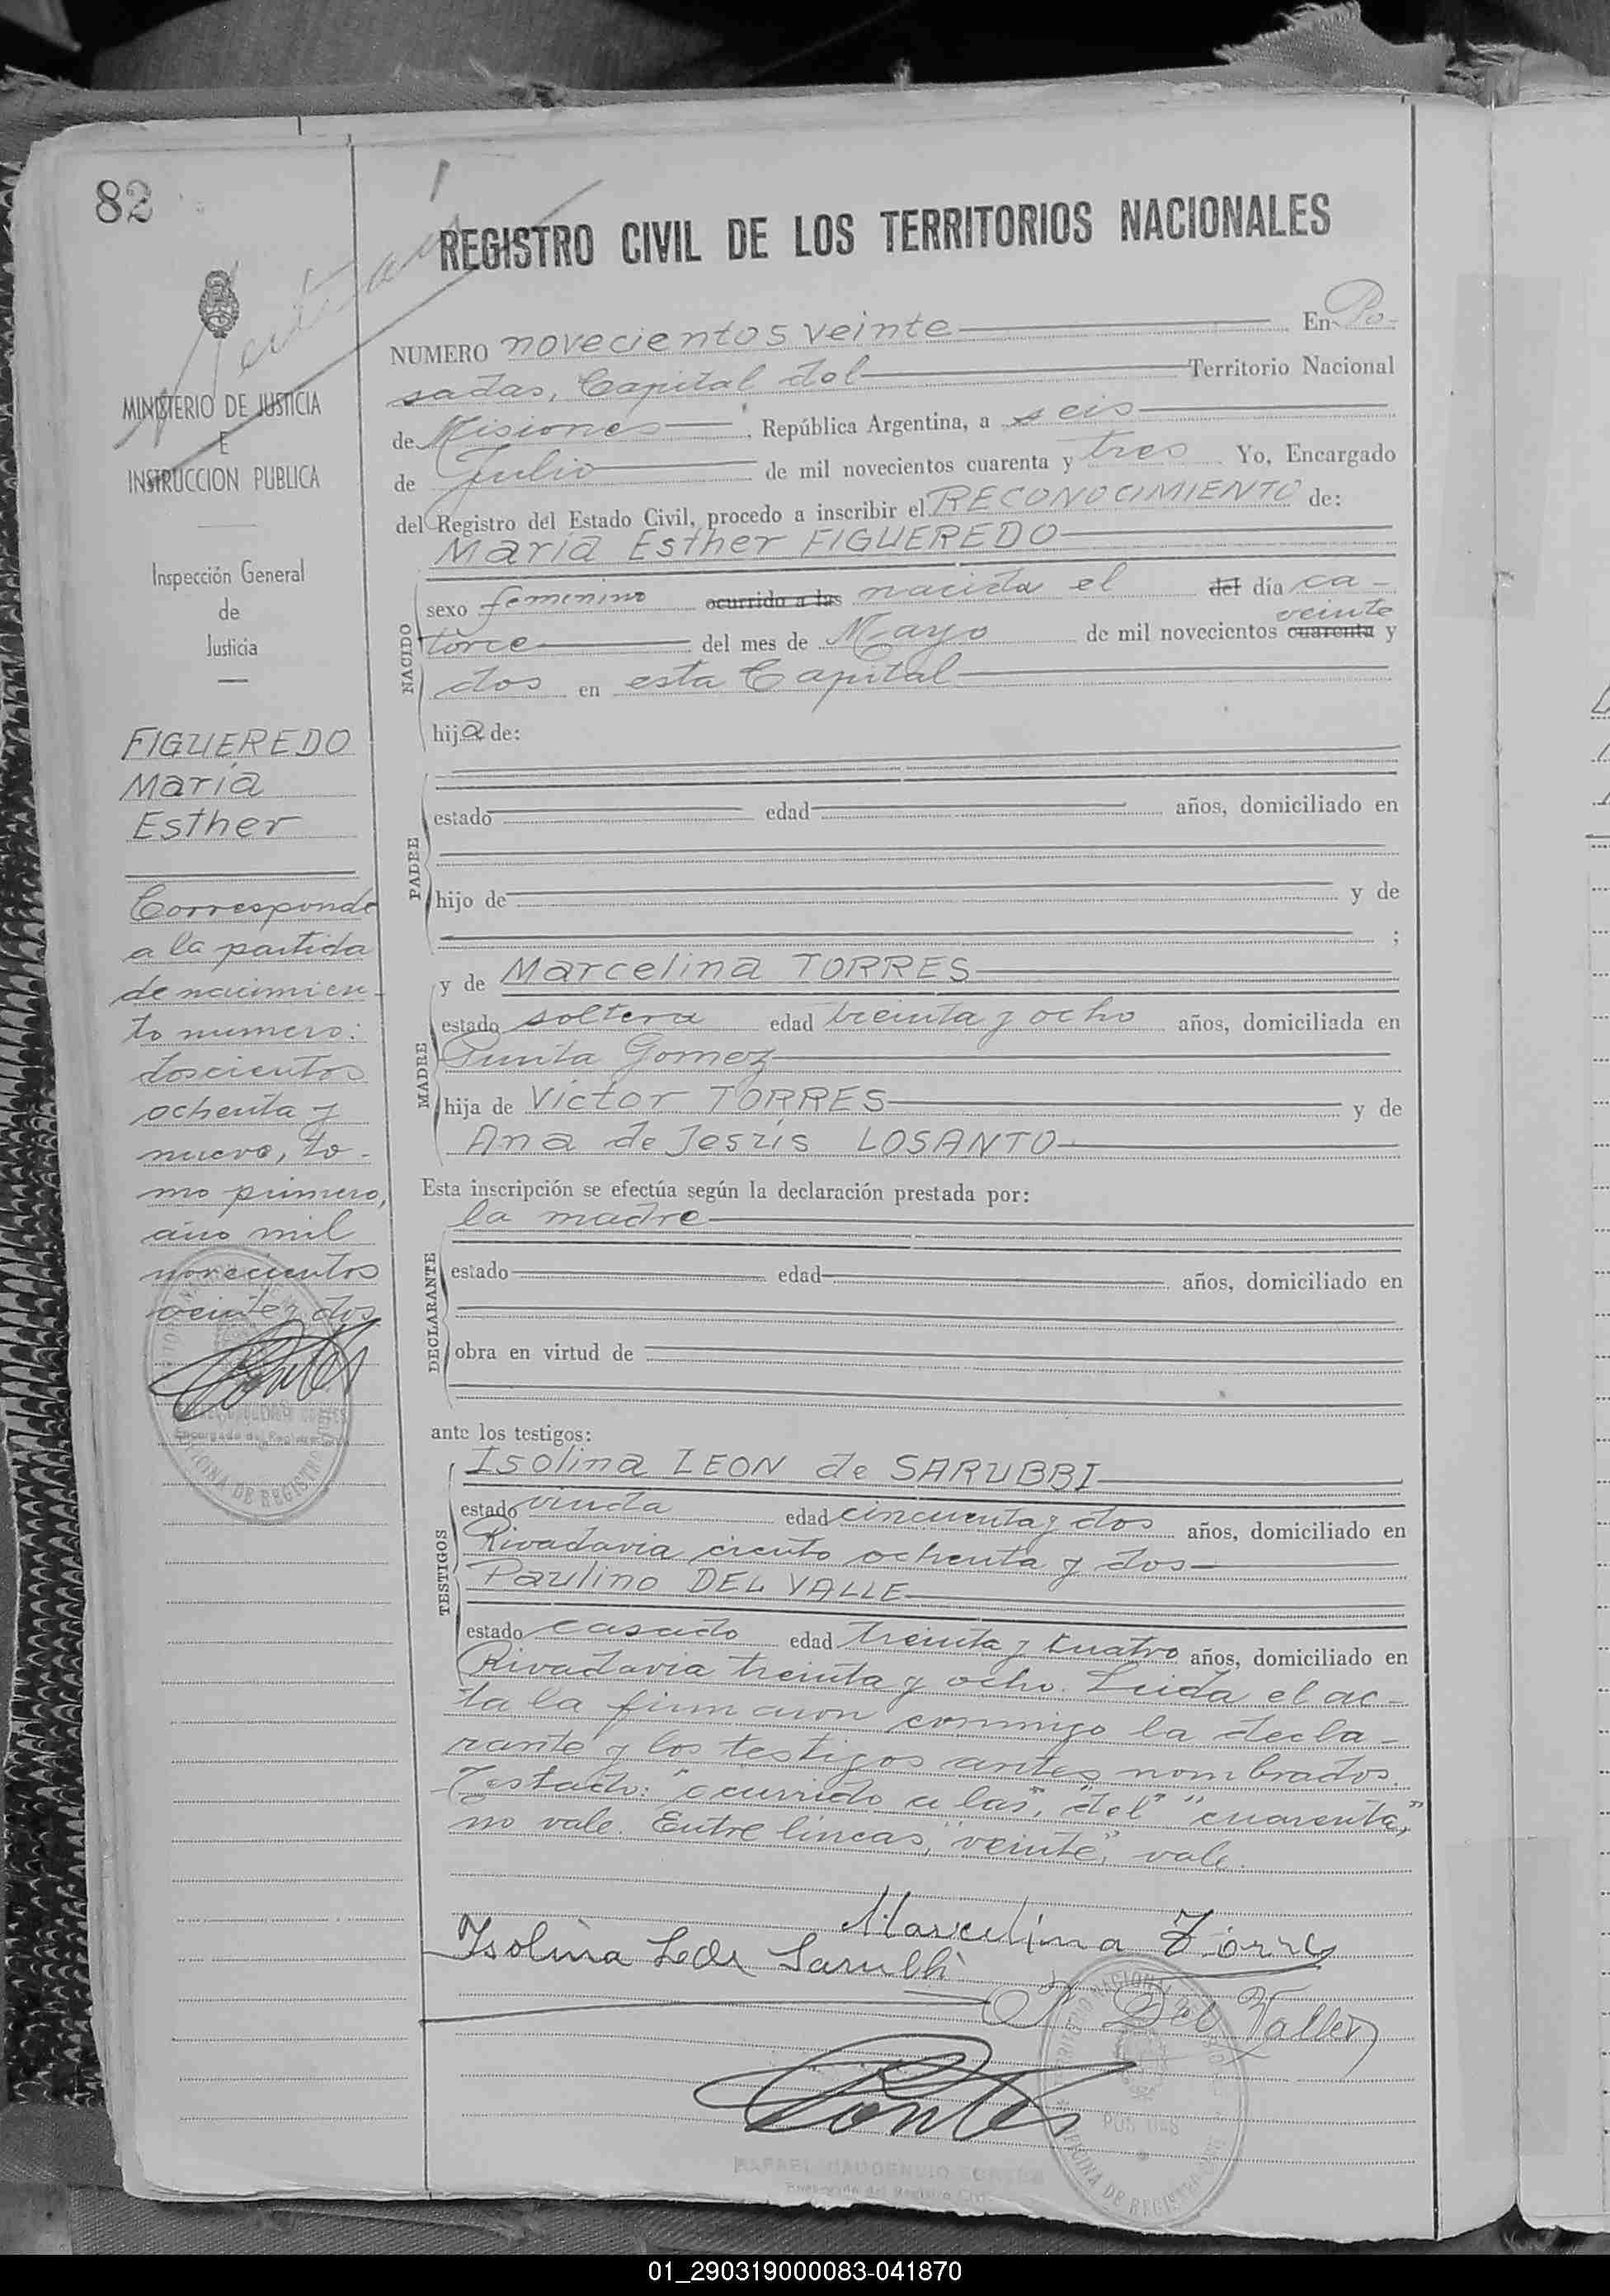 82
REGISTRO CIVIL DE LOS TERRITORIOS NACIONALES
MINISTERIO DE JUSTICIA
E
INSTRUCCION PUBLICA
Inspección General
de
Justicia
FIGUEREDO
María
Esther
Corresponde
a la partida
de nacimien-
to numero:
doscientos
ochenta y
nueve, to-
mo primero,
año mil
novecientos
veinte y dos
Encargado del Registro
OFICINA DE REGISTRO
NUMERO novecientos veinte En Po-
sadas, Capital del Territorio Nacional
de Misiones, República Argentina, a seis
de Julio de mil novecientos cuarenta y tres Yo, Encargado
del Registro del Estado Civil, procedo a inscribir el RECONOCIMIENTO de:
María Esther FIGUEREDO
NACIDO
sexo femenino ocurrido a las nacida el del día ca-
veinte
torce del mes de Mayo de mil novecientos cuarenta y
dos en esta Capital
hija de:
PADRE
estado edad años, domiciliado en
hijo de y de
;
MADRE
y de Marcelina TORRES
estado soltera edad treinta y ocho años, domiciliada en
Punta Gomez
hija de Víctor TORRES y de
Ana de Jesús LOSANTO
Esta inscripción se efectúa según la declaración prestada por:
la madre
DECLARANTE
estado edad años, domiciliado en
obra en virtud de
ante los testigos:
TESTIGOS
Isolina LEON de SARUBBI
estado viuda edad cincuenta y dos años, domiciliado en
Rivadavia ciento ochenta y dos
Paulino DEL VALLE
estado casado edad treinta y cuatro años, domiciliado en
Rivadavia treinta y ocho. Leida el ac-
ta la firmaron conmigo la decla-
rante y los testigos antes nombrados.
Testado: "ocurrido a las", "del" "cuarenta",
no vale. Entre líneas, "veinte", vale.
Marcelina Torres
Isolina Sarubbi
P Del Valle
POSADAS
OFICINA DE REGISTRO
RAFAEL GAUDENCIO CORTES
Encargado del Registro Civil
01_290319000083-041870